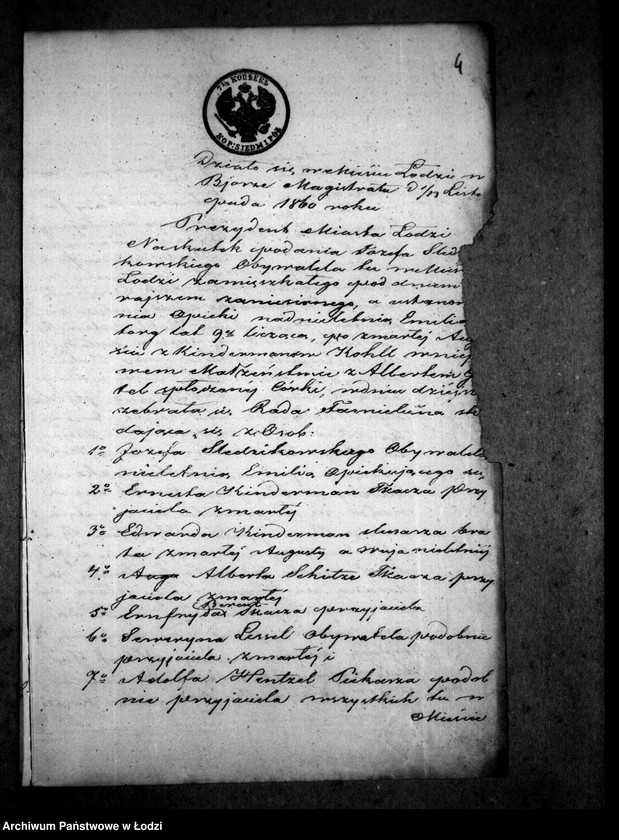 4
7½ KOPEEKЪ
KOP: SIEDM I PÓŁ
Działo się w Mieście Łodzi w
Bjórze Magistratu d
pada 1860 roku
Prezydent Miasta Łodzi
Na skutek podania Józefa Śled
kowskiego Obywatela tu w Mieś
Łodzi zamieszkałego pod dniem
rajszem zaniesionego, a ustano
nia Opieki nad nieletnią Emilią
lat 9½ liczącą, po zmarłej Aug
z Kindermanów Kohll w
wem Małżeństwie z Albertem
tel spłodzonej Córki, w dniu dzisiej
zebrała się Rada Familijna skł
dająca się z Osob:
1o Józefa Śledzikowskiego Obywatela
nieletnią Emilią Opiekującego się
2o Ernesta Kinderman Tkacza Przy
jaciela zmarłej
3o Edwarda Kinderman slusarza bra
ta zmarłej Augusty a wuja nieletniej
4o Alberta Schitze Tkacza przy
jaciela zmarłej
5o Ernfryda Berent Tkacza przyjaciela
6o Seweryna Lissel Obywatela podobnie
przyjaciela zmarłej i
7o Adolfa Hentzel Piekarza podob
nie przyjaciela wszystkich tu w
Mieście
Archiwum Państwowe w Łodzi